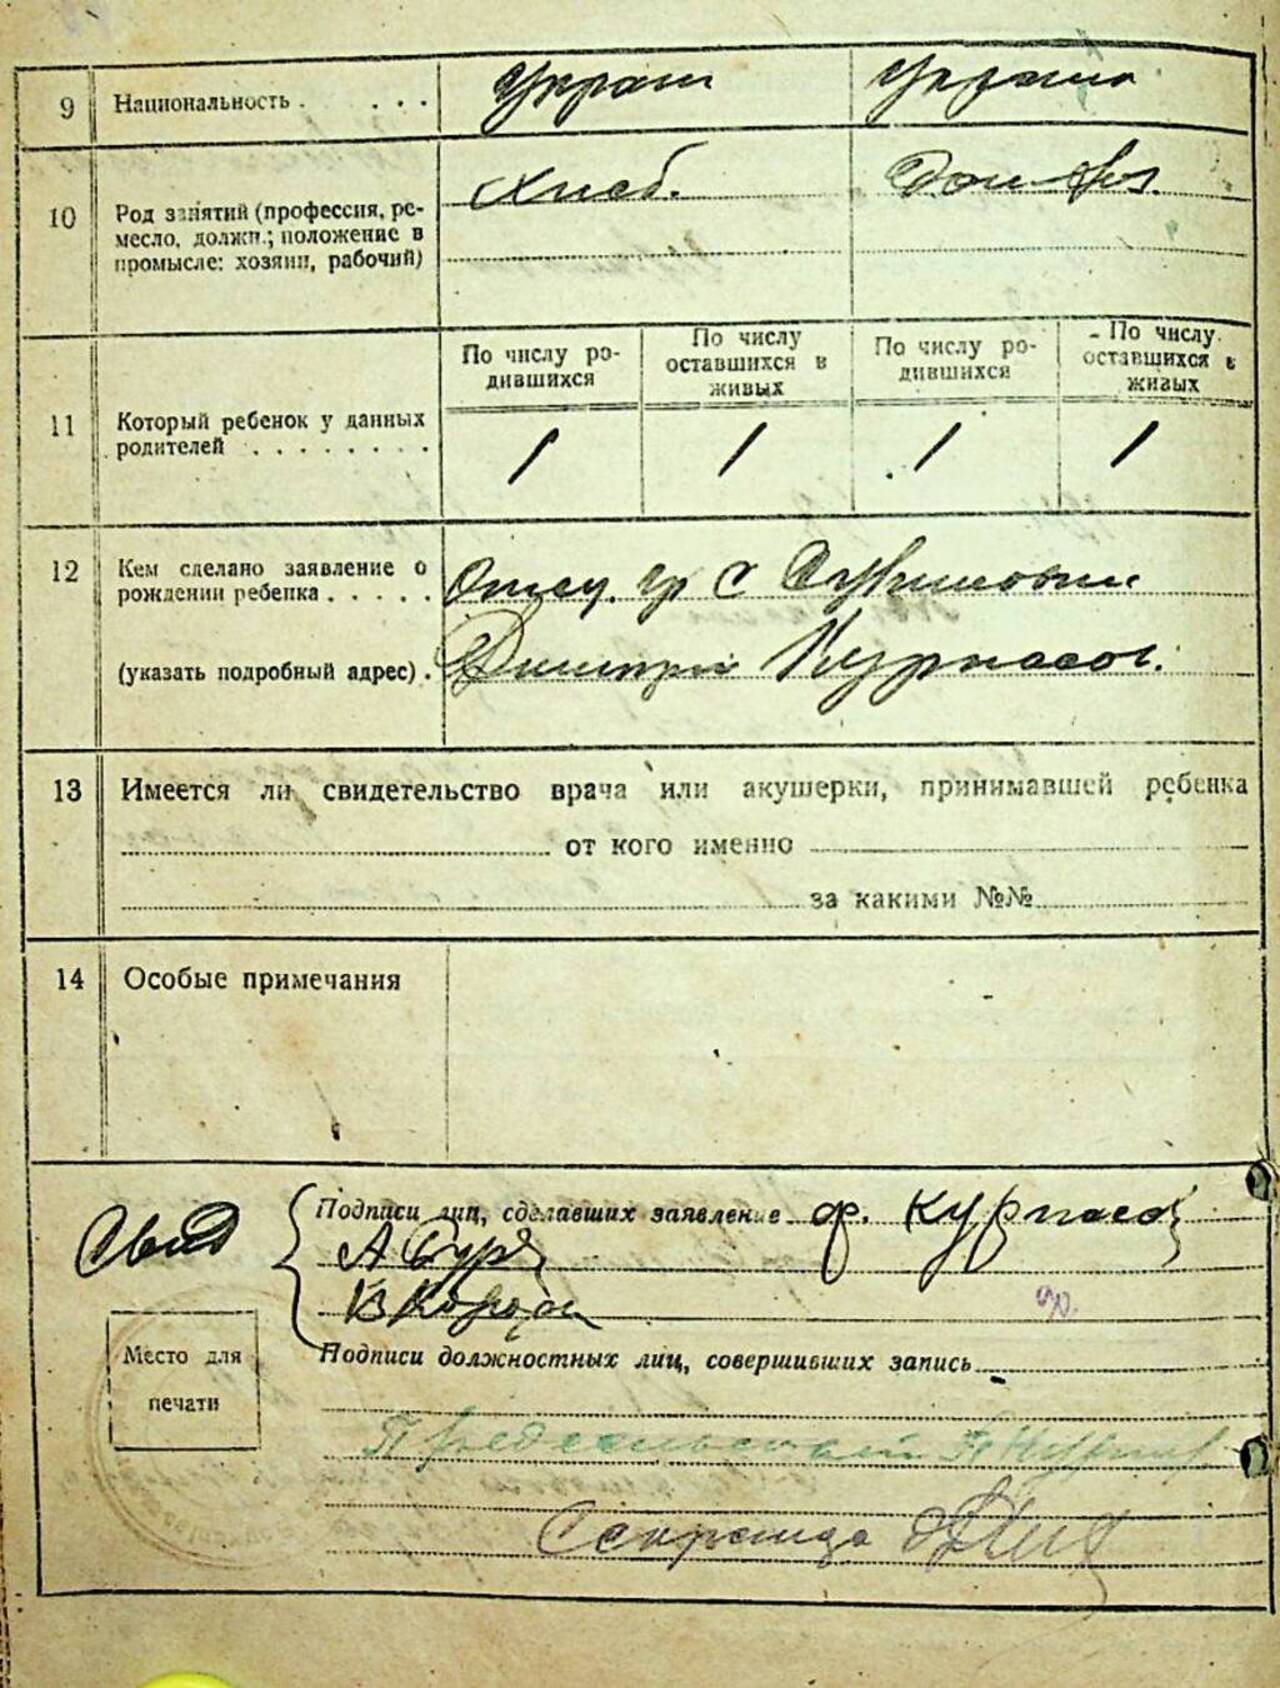 9 Национальность . . . . Украин Украин
10 Род занятий (профессия, ре-
месло, должн.; положение в
промысле: хозяин, рабочий)
Хлеб.
По числу ро-
дившихся
По числу
оставшихся в
живых
По числу ро-
дившихся
По числу
оставшихся в
живых
11 Который ребенок у данных
родителей . . . . . . . .
1 1 1 1
12 Кем сделано заявление о
рождении ребенка . . . . .
Отец гр с
(указать подробный адрес) .
Дмитрий Курпасов.
13 Имеется ли свидетельство врача или акушерки, принимавшей ребенка
от кого именно
за какими №№
14 Особые примечания
Свид
Подписи лиц, сделавших заявление Курпасов
А
В
Место для
печати
Подписи должностных лиц, совершивших запись
Секретарь